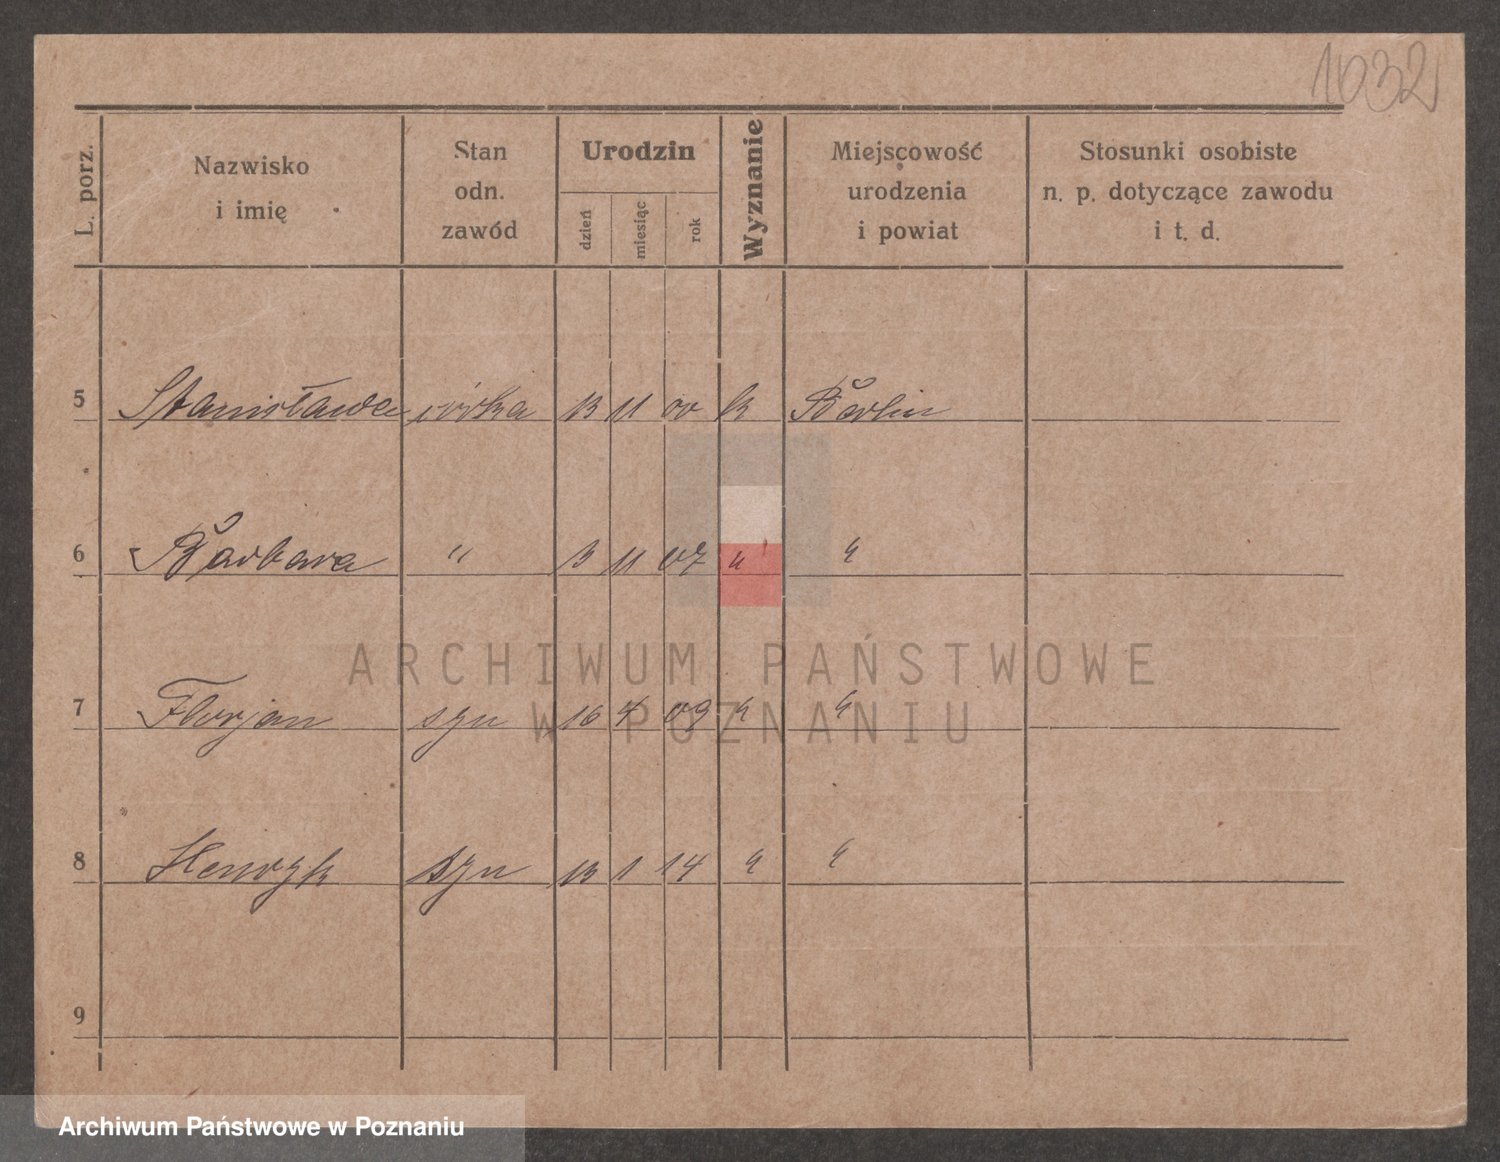 1032
L. porz.
Nazwisko
i imię
Stan
odn.
zawód
Urodzin
dzień
miesiąc
rok
Wyznanie
Miejscowość
urodzenia
i powiat
Stosunki osobiste
n. p. dotyczące zawodu
i t. d.
5 Stanisława córka 13 11 00 k Berlin
6 Barbara " 3 11 07 " "
7 Florjan syn 16 4 09 " "
8 Henryk syn 13 1 14 " "
9
ARCHIWUM PAŃSTWOWE
W POZNANIU
Archiwum Państwowe w Poznaniu